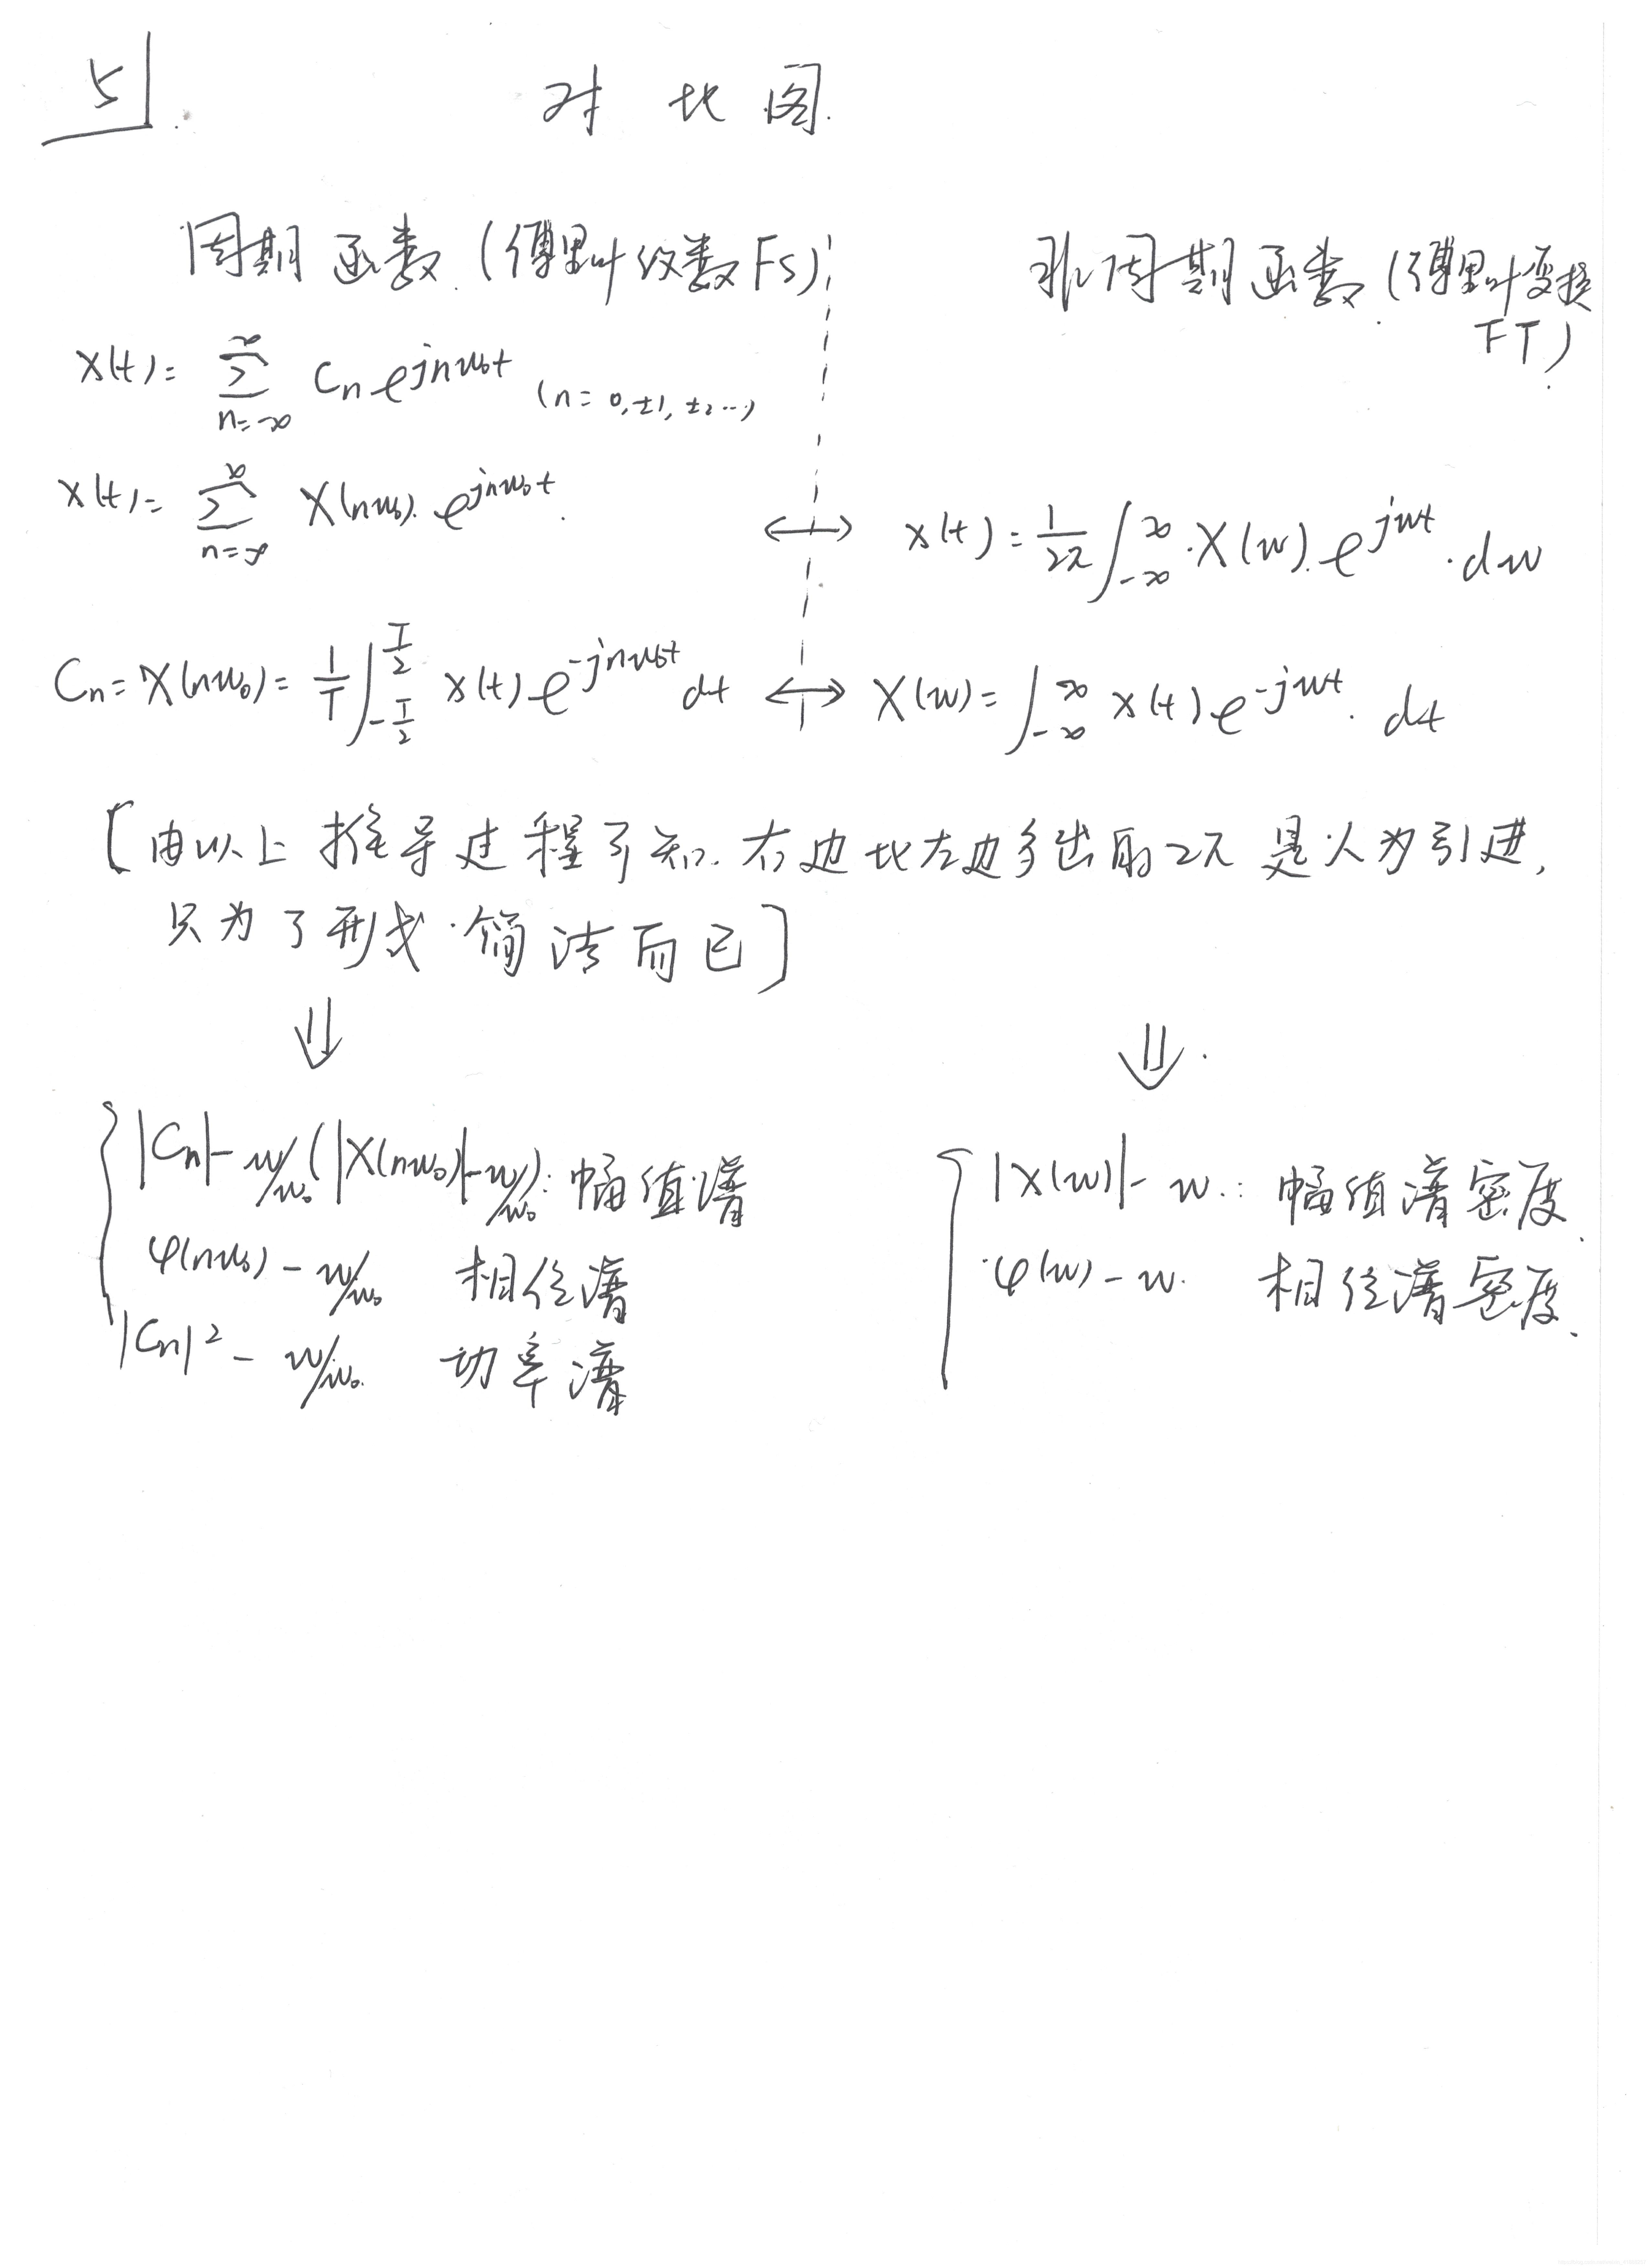 5
对比图.
周期函数(傅里叶级数FS)
非周期函数(傅里叶变换
FT)
x(t)= ∑_{n=-∞}^{∞} Cn e^{jnw₀t} (n=0,±1,±2…)
x(t)= ∑_{n=-∞}^{∞} X(nw₀)·e^{jnw₀t}
↔ x(t)= 1/2π ∫_{-∞}^{∞}·X(w)·e^{jwt}·dw
Cn=X(nw₀)= 1/T ∫_{-T/2}^{T/2} x(t)e^{-jnw₀t}dt ↔ X(w)= ∫_{-∞}^{∞} x(t)e^{-jwt}·dt
[由以上推导过程可知.右边比左边多出的2π是人为引进,
只为了形式·简洁而已]
⇓ ⇓
|Cn|-w/w₀(|X(nw₀)|-w/w₀):幅值谱
φ(nw₀)-w/w₀ 相位谱
|Cn|²-w/w₀. 功率谱
|X(w)|-w.: 幅值谱密度.
φ(w)-w. 相位谱密度.